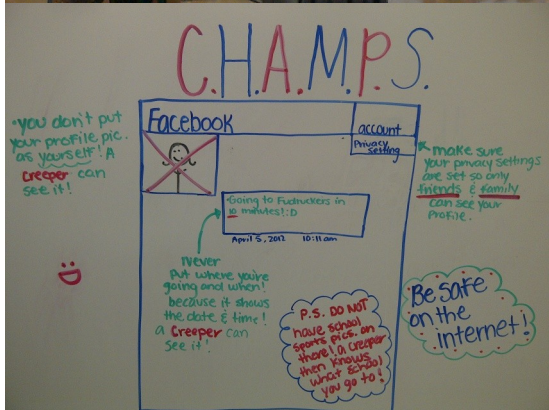 C.H.A.M.P.S.
Facebook
account
Privacy
setting
•you don't put
your profile pic.
as yourself! A
creeper can
see it!
make sure
your privacy settings
are set so only
friends & family
can see your
profile.
Going to Fudruckers in
10 minutes! :D
April 5, 2012 10:11am
never
put where you're
going and when!
because it shows
the date & time!
a creeper can
see it!
:D
P.S. DO NOT
have school
sports pics. on
there! a creeper
then knows
what school
you go to!
Be safe
on the
internet!